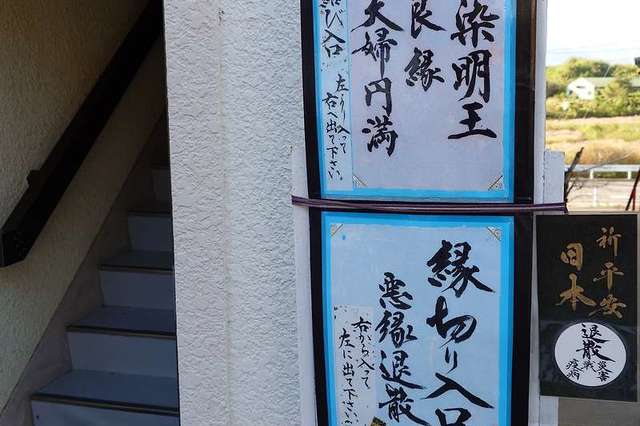 染明王
良縁
夫婦円満
び入口
左より入って
右へ出て下さい。
縁切り入口
悪縁退散
右から入って
左に出て下さい
祈平安
日本
退散
災害
疫病